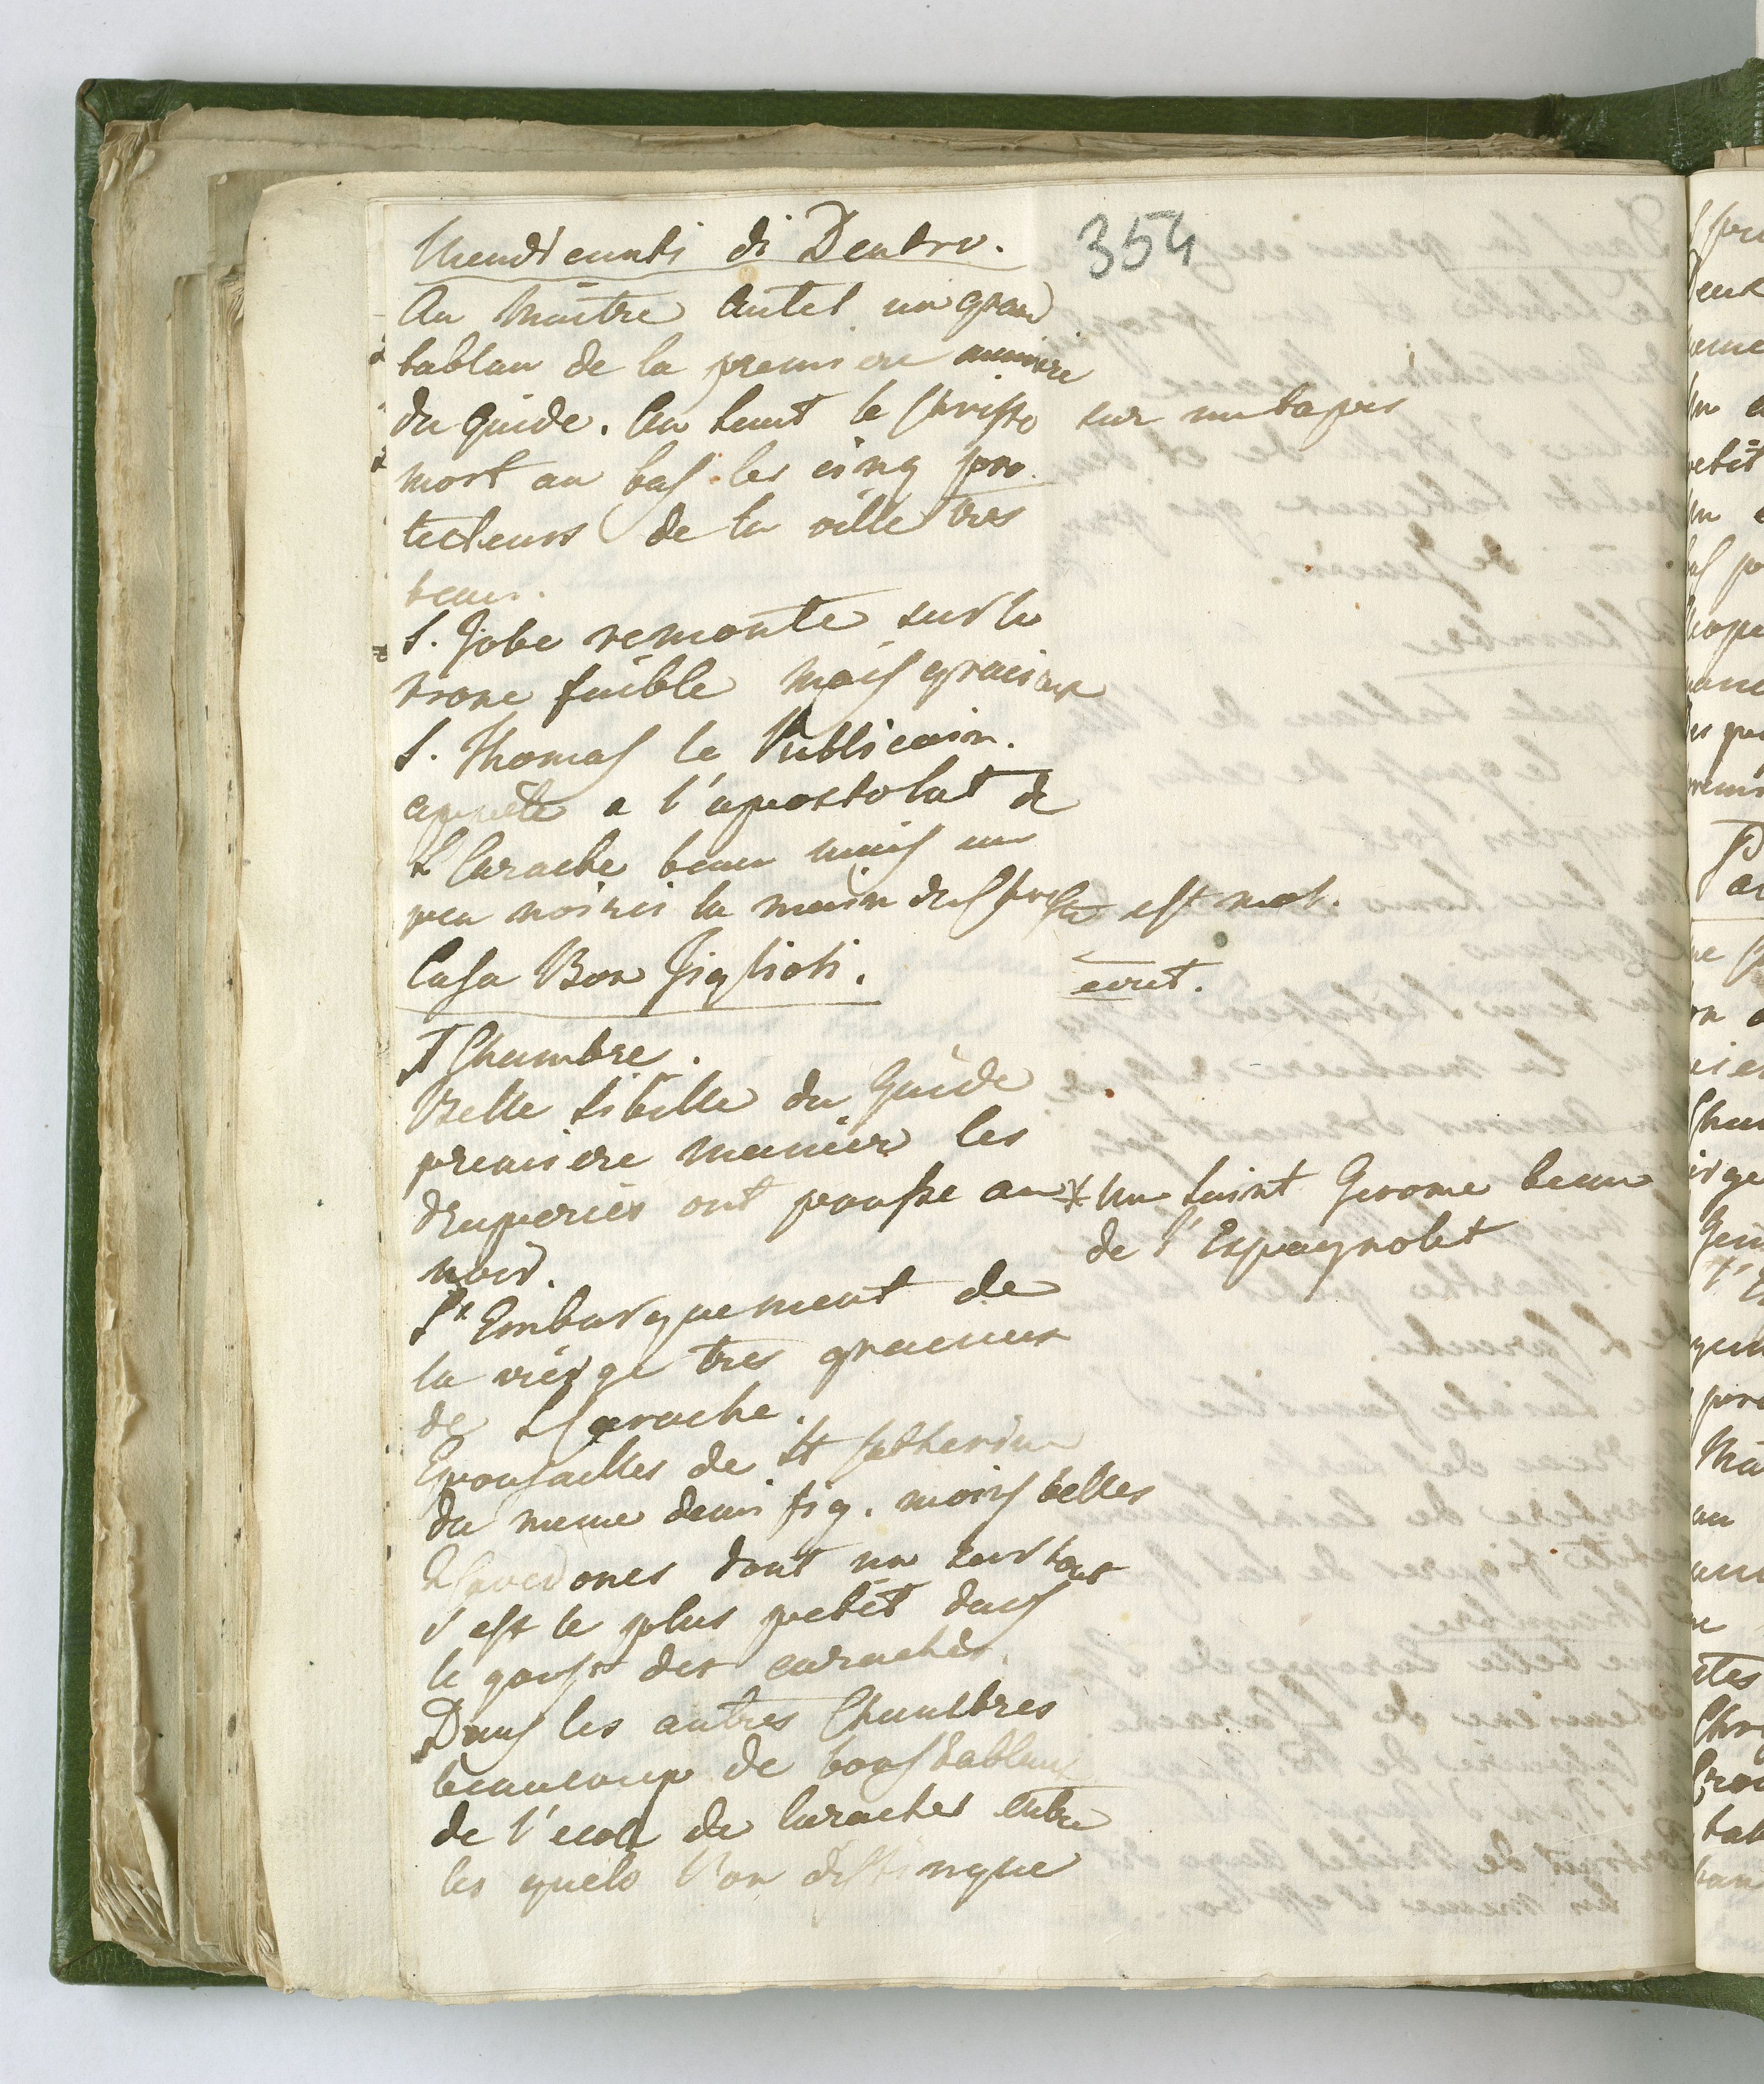 Mendicanti di Dentro.
354
Au Maitre Autel un grand
tablau de la premiere maniere
du Guide. Au haut le Christo sur un tapis
mort au bas les cinq pro
tecteurs de la ville tres
beau.
S. Jobe remonte sur le
trone faible mais gracieux
S. Thomas le Publicain.
appelle a l'apostolat de
L Carache beau mais un
peu noirci la main du Christo est mal.
Casa Bon Figlioli.
cout.
I Chambre.
Belle Sibille du Guide
premiere manier les
draperies ont pousse au
noir.
* un Saint Gerome beau
de l'Espagnolet
L'Embarquement de
la vierge tres gracieux
de L Carache.
Epousailles de St Catherine
du meme demi fig. moins belles
dont un surtout
c'est le plus petit dans
le goust des caraches.
Dans les autres Chambres
beaucoup de bons tableaux
de l'ecole de Caraches entre
les quels l'on distingue